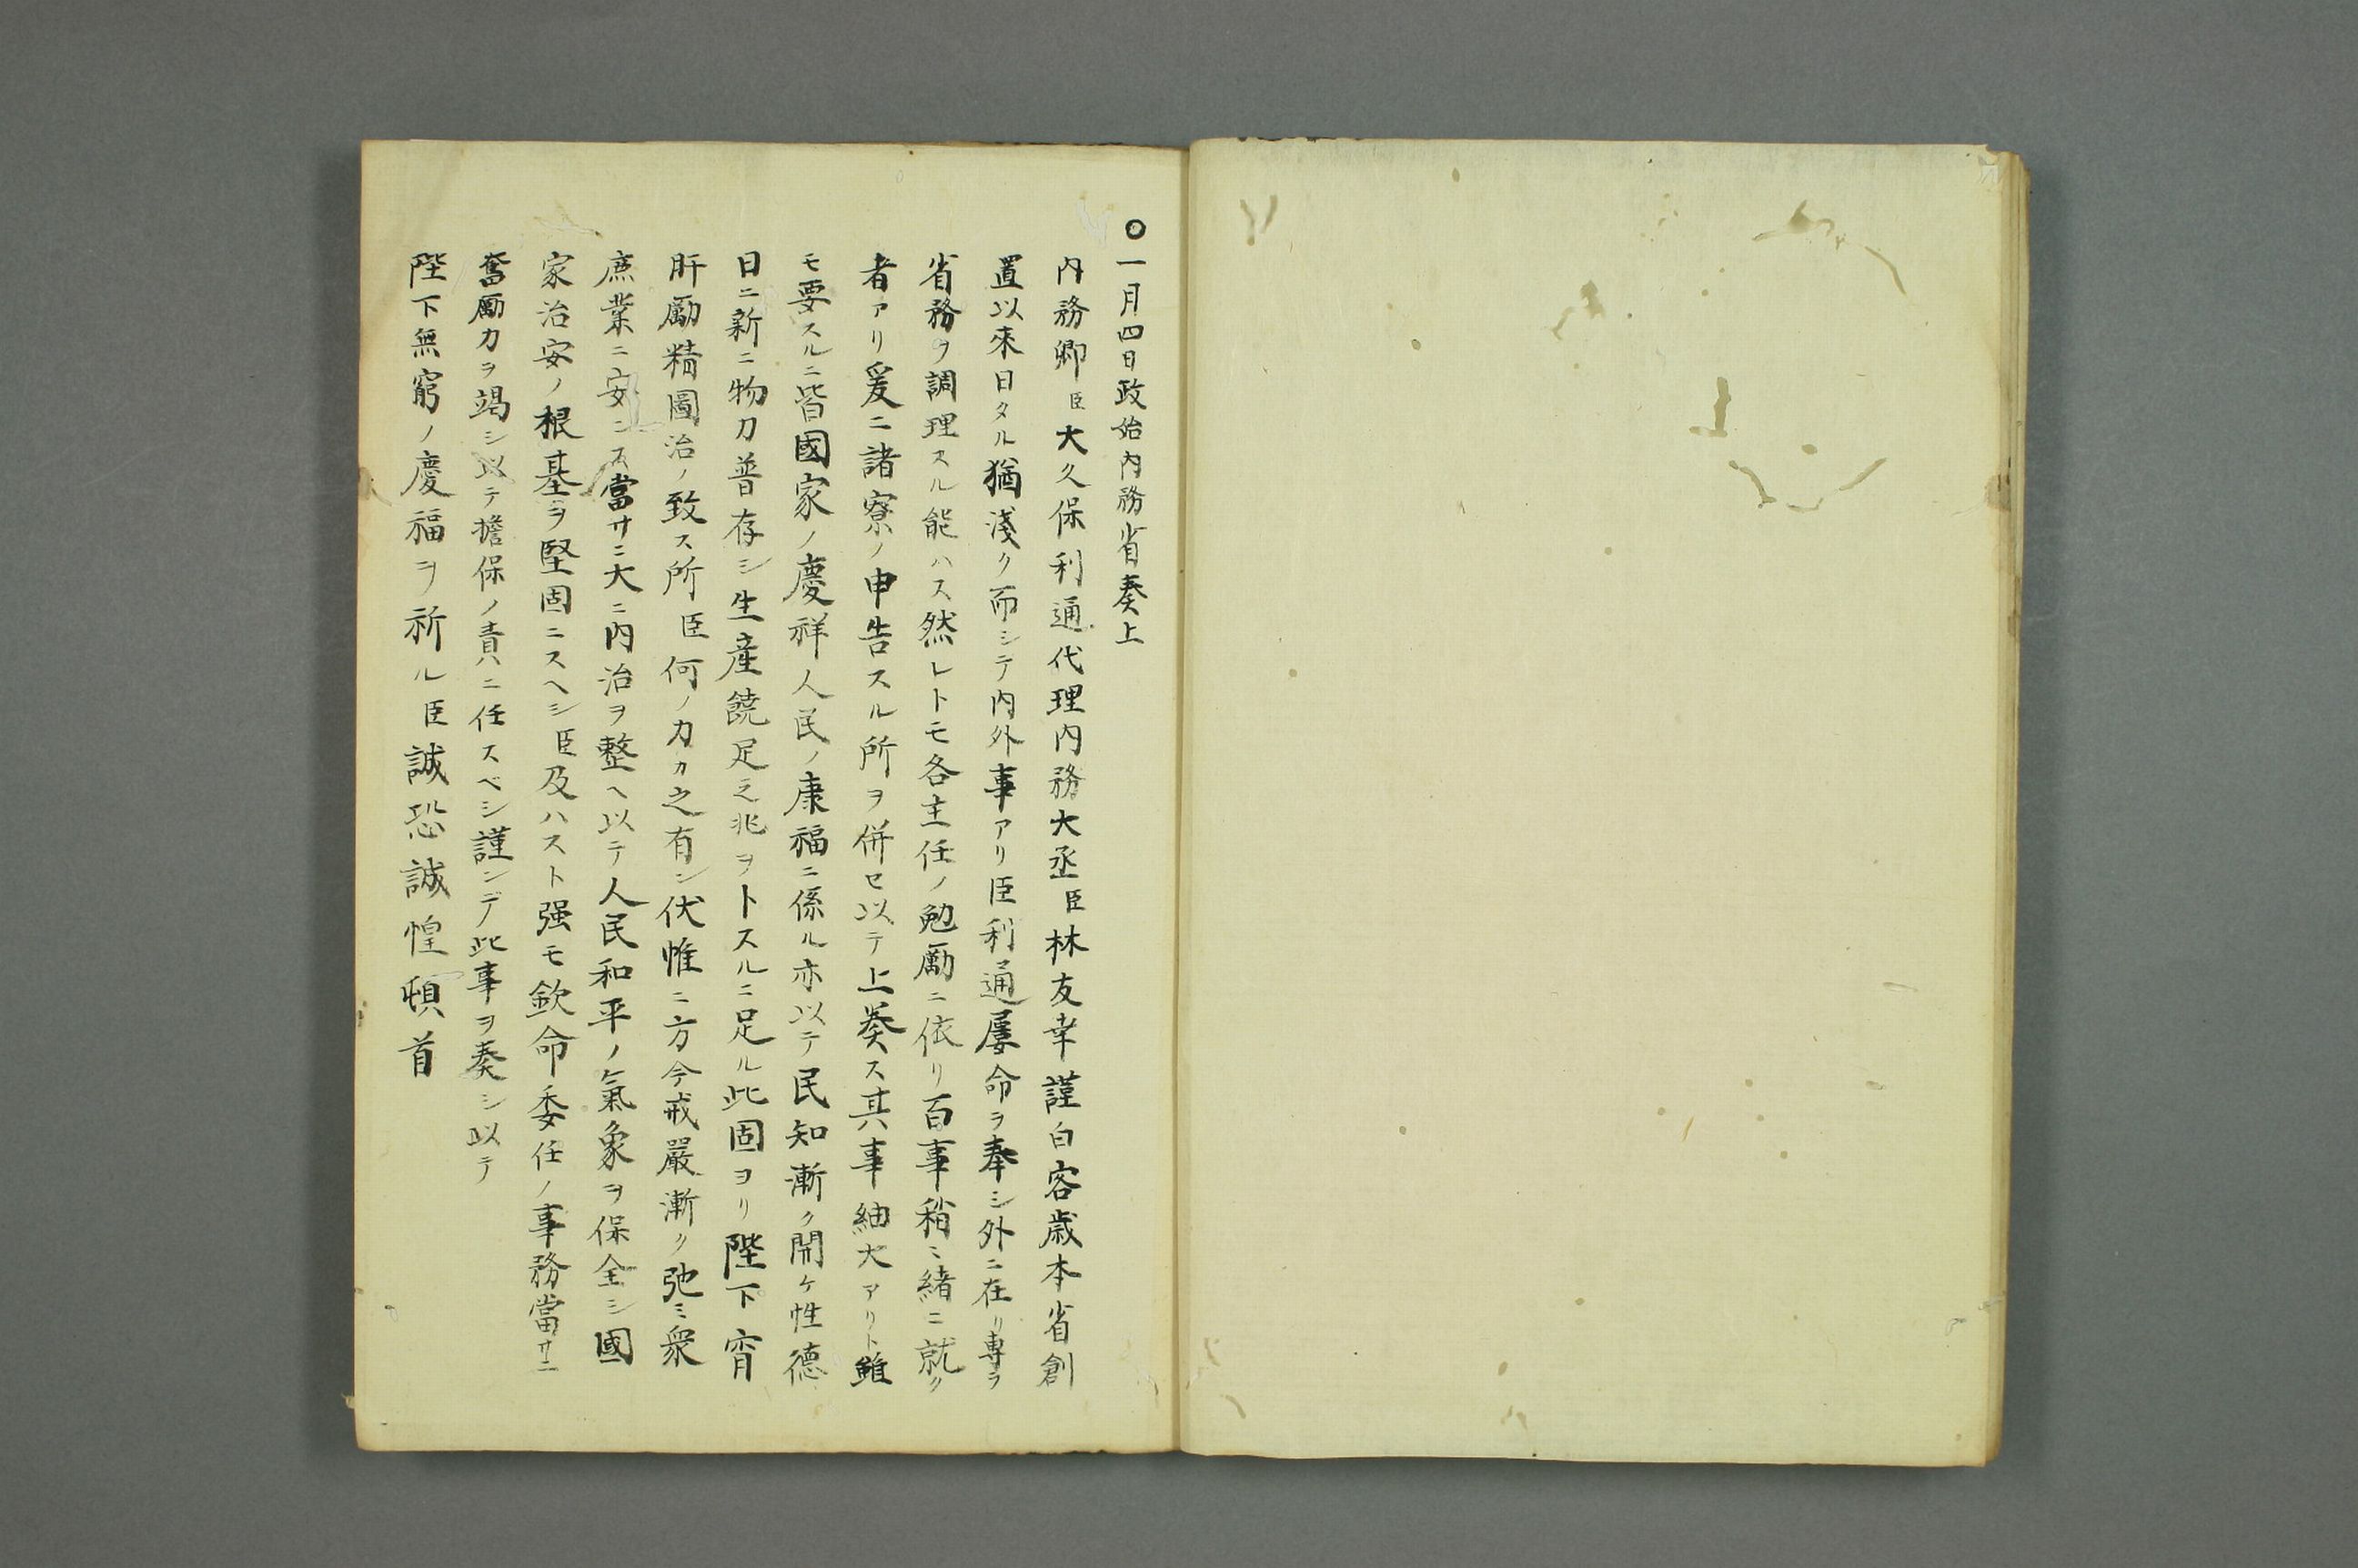 ○一月四日政始内務省奏上
内務卿臣大久保利通代理内務大丞臣林友幸謹白客歳本省創
置以來日タル猶淺ク而シテ内外事アリ臣利通屢命ヲ奉シ外ニ在リ専ラ
省務ヲ調理スル能ハス然レトモ各主任ノ勉勵ニ依リ百事稍ミ緒ニ就ク
者アリ爰ニ諸寮ノ申告スル所ヲ併セ以テ上奏ス其事紬大アリト雖
モ要スルニ皆國家ノ慶祥人民ノ康福ニ係ル亦以テ民知漸ク開ケ性德
日ニ新ニ物力普存シ生産饒足之兆ヲトスルニ足ル此固ヨリ陛下宵
肝勵精圖治ノ致ス所臣何ノ力カ之有ン伏惟ニ方今戒嚴漸ク弛ミ衆
庶業ニ安ンス當サニ大ニ内治ヲ整ヘ以テ人民和平ノ氣象ヲ保全シ國
家治安ノ根基ヲ堅固ニスヘシ臣及ハスト强モ欽命委任ノ事務當サニ
奮勵力ヲ竭シ以テ擔保ノ責ニ任スベシ謹ンデ此事ヲ奏シ以テ
陛下無窮ノ慶福ヲ祈ル臣誠恐誠惶頓首